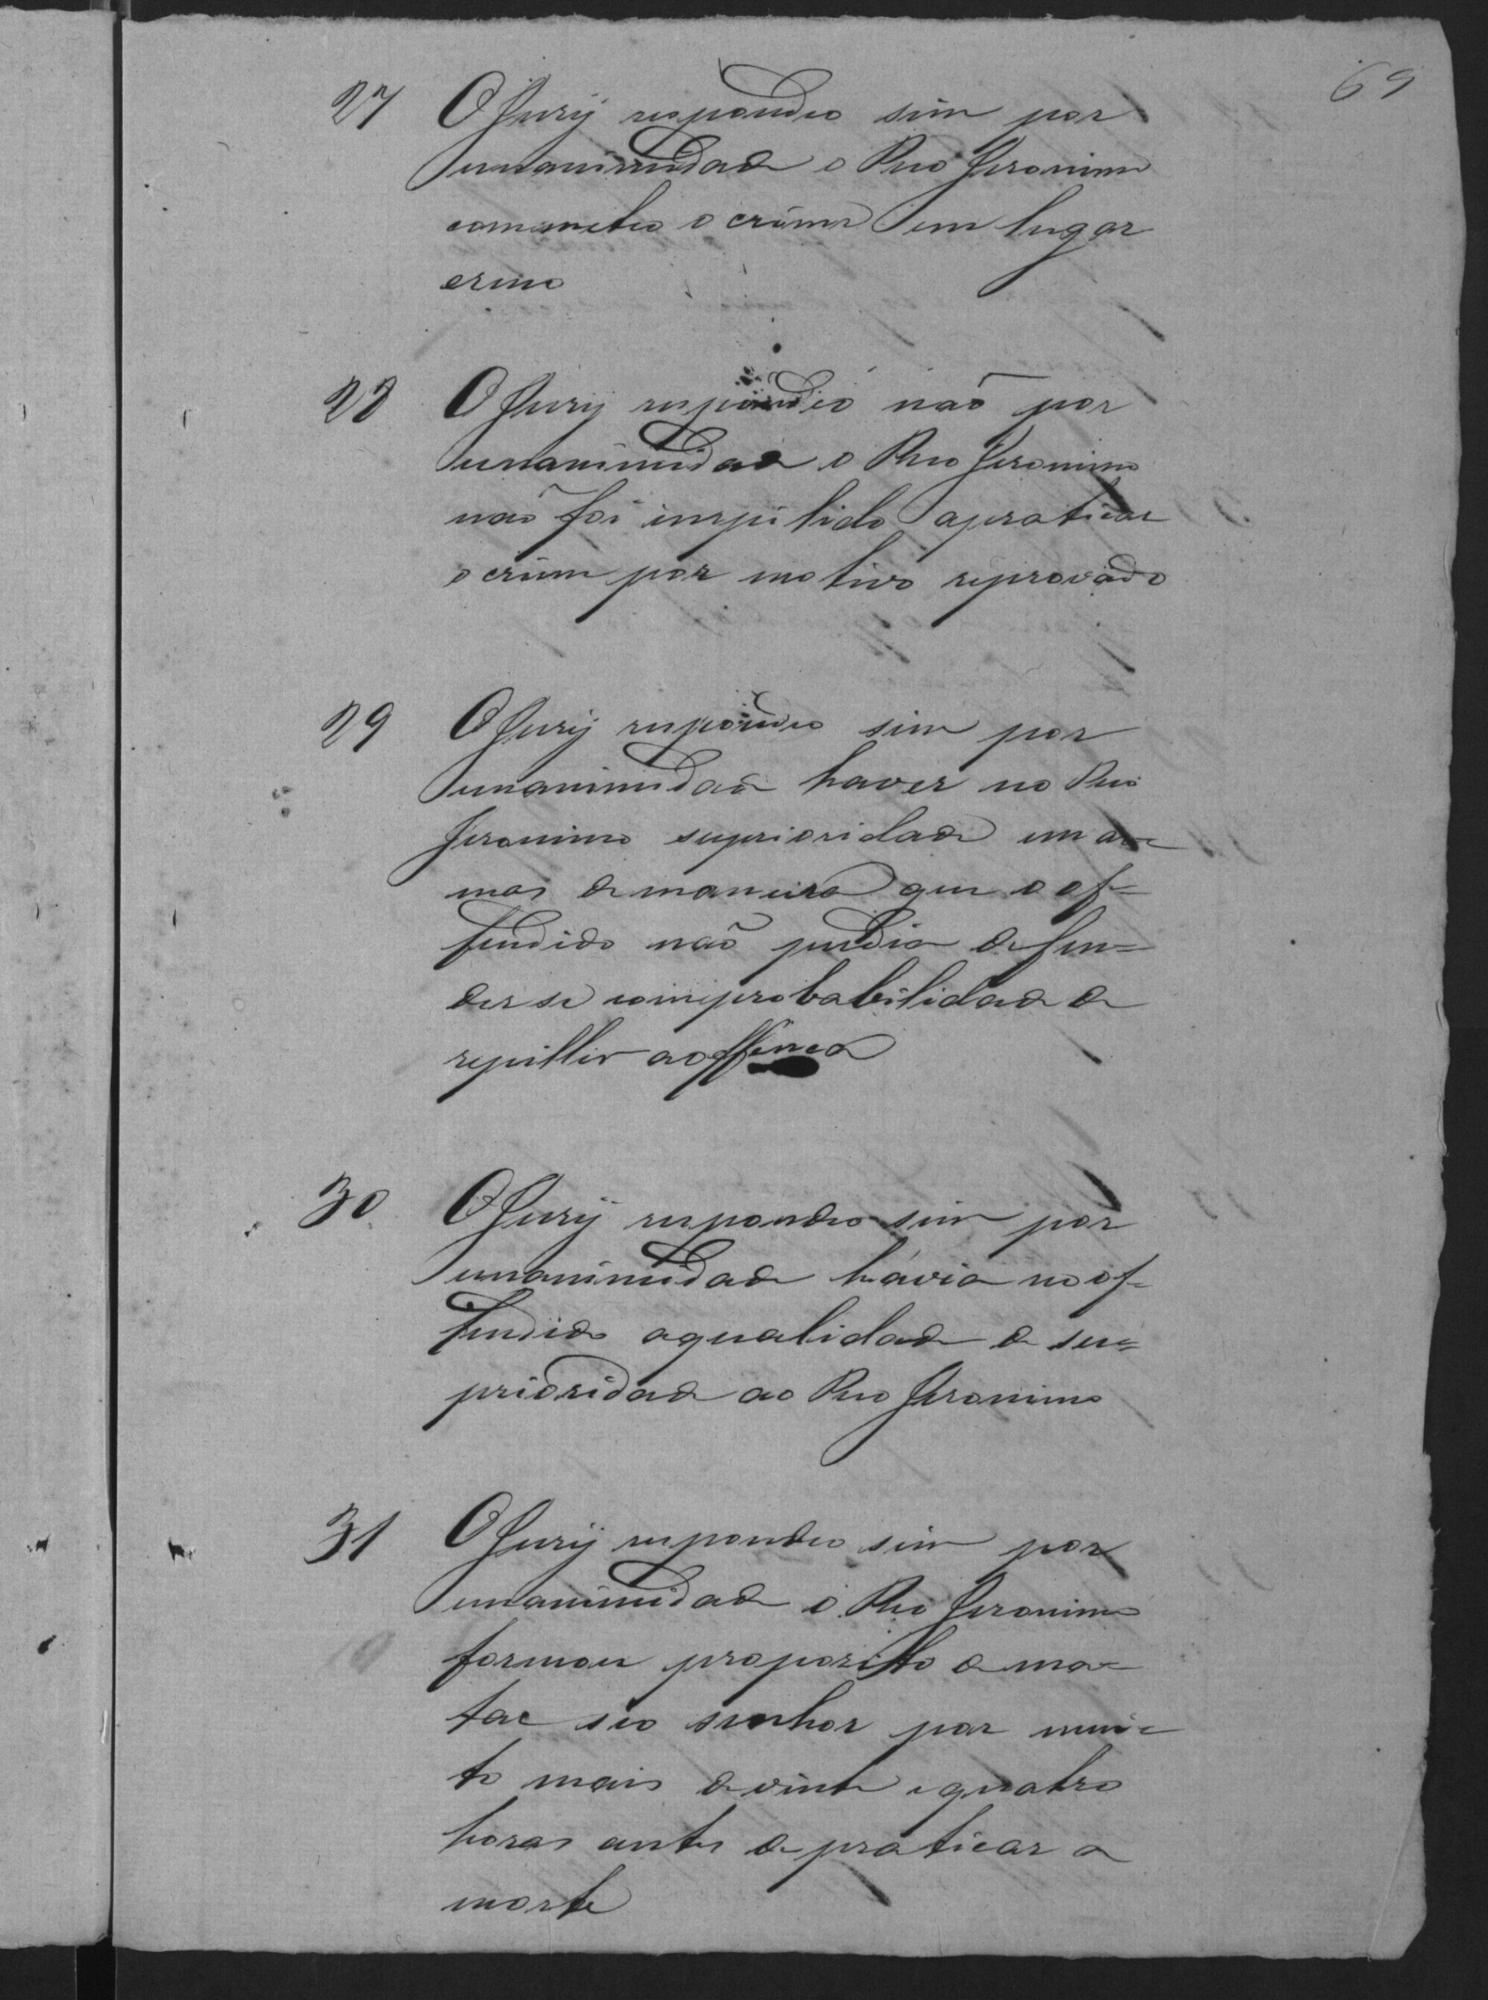 69
27 O Jury respondeo sim por
unanimidade o Reo Jeronimo
commeteo o crime em lugar
ermo
28 O Jury respondeo não por
unanimidade o Reo Jeronimo
não foi impilido apraticar
o crime por motivo reprovado
29 O Jury respondeo sim por
unanimidade haver no Reo
Jeronimo superioridade em ar=
mas de maneira que o of=
fendido não pudia defen=
der se com probabilidade de
repillir aoffença
30 O Jury respondeo sim por
unanimidade havia no of=
fendido aqualidade de su=
prioridade ao Reo Jeronimo
31 O Jury respondeo sim por
unanimidade o Reo Jeronimo
formou proposito de ma=
tar seo senhor por mui=
to mais de vinte equatro
horas antes de praticar a
morte